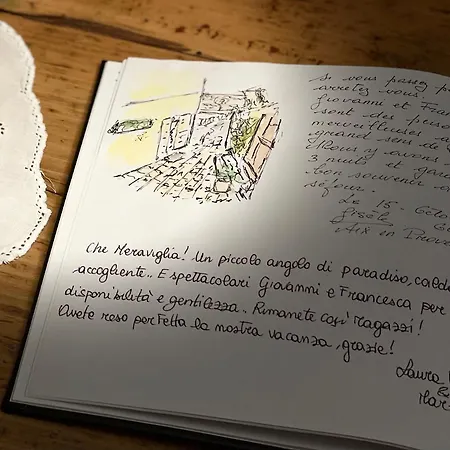 Si vous passez p
arretez vous!
Giovanni et Fran
sont des
merveilleuses
grand sens de
Nous y avons
3 nuits et
bon souvenir
séjour.
Le 15.
Gisèle
Aix en Prove
Che Meraviglia! Un piccolo angolo di paradiso, caldo
accogliente.. E spettacolari Giovanni e Francesca per
disponibilità e gentilezza.. Rimanete così ragazzi!
Avete reso perfetta la nostra vacanza, grazie!
Laura
Mar